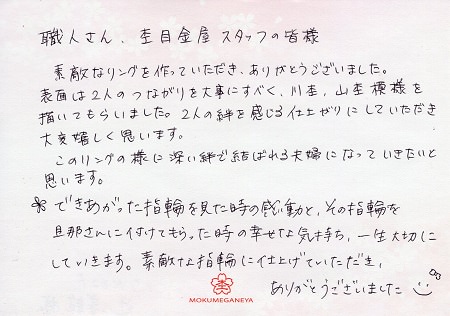 職人さん、杢目金屋 スタッフの皆様
素敵なリングを作っていただき、ありがとうございました。
表面は2人のつながりを大事にすべく、川杢、山杢模様を
描いてもらいました。2人の絆を感じる仕上がりにしていただき
大変嬉しく思います。
このリングの様に深い絆で結ばれる夫婦になっていきたいと
思います。
できあがった指輪を見た時の感動と、その指輪を
旦那さんに付けてもらった時の幸せな気持ち、一生大切に
していきます。素敵な指輪に仕上げていただき、
ありがとうございました
杢
MOKUMEGANEYA